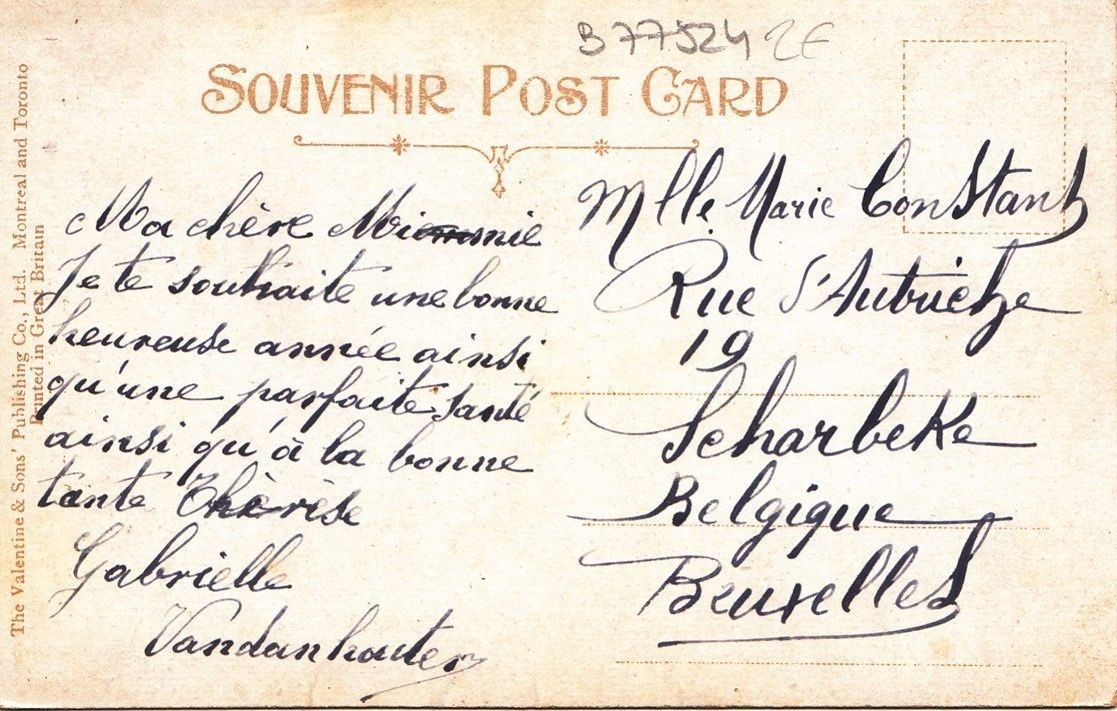 B77524 2€
SOUVENIR POST CARD
The Valentine & Sons' Publishing Co., Ltd. Montreal and Toronto
Printed in Great Britain
Ma chère
Je te souhaite une bonne
heureuse année ainsi
qu'une parfaite santé
ainsi qu'à la bonne
tante Thérèse
Gabrielle
Vandanhouter
Mlle Marie Constant
Rue d'Autriche
19
Scharbeke
Belgique
Bruxelles